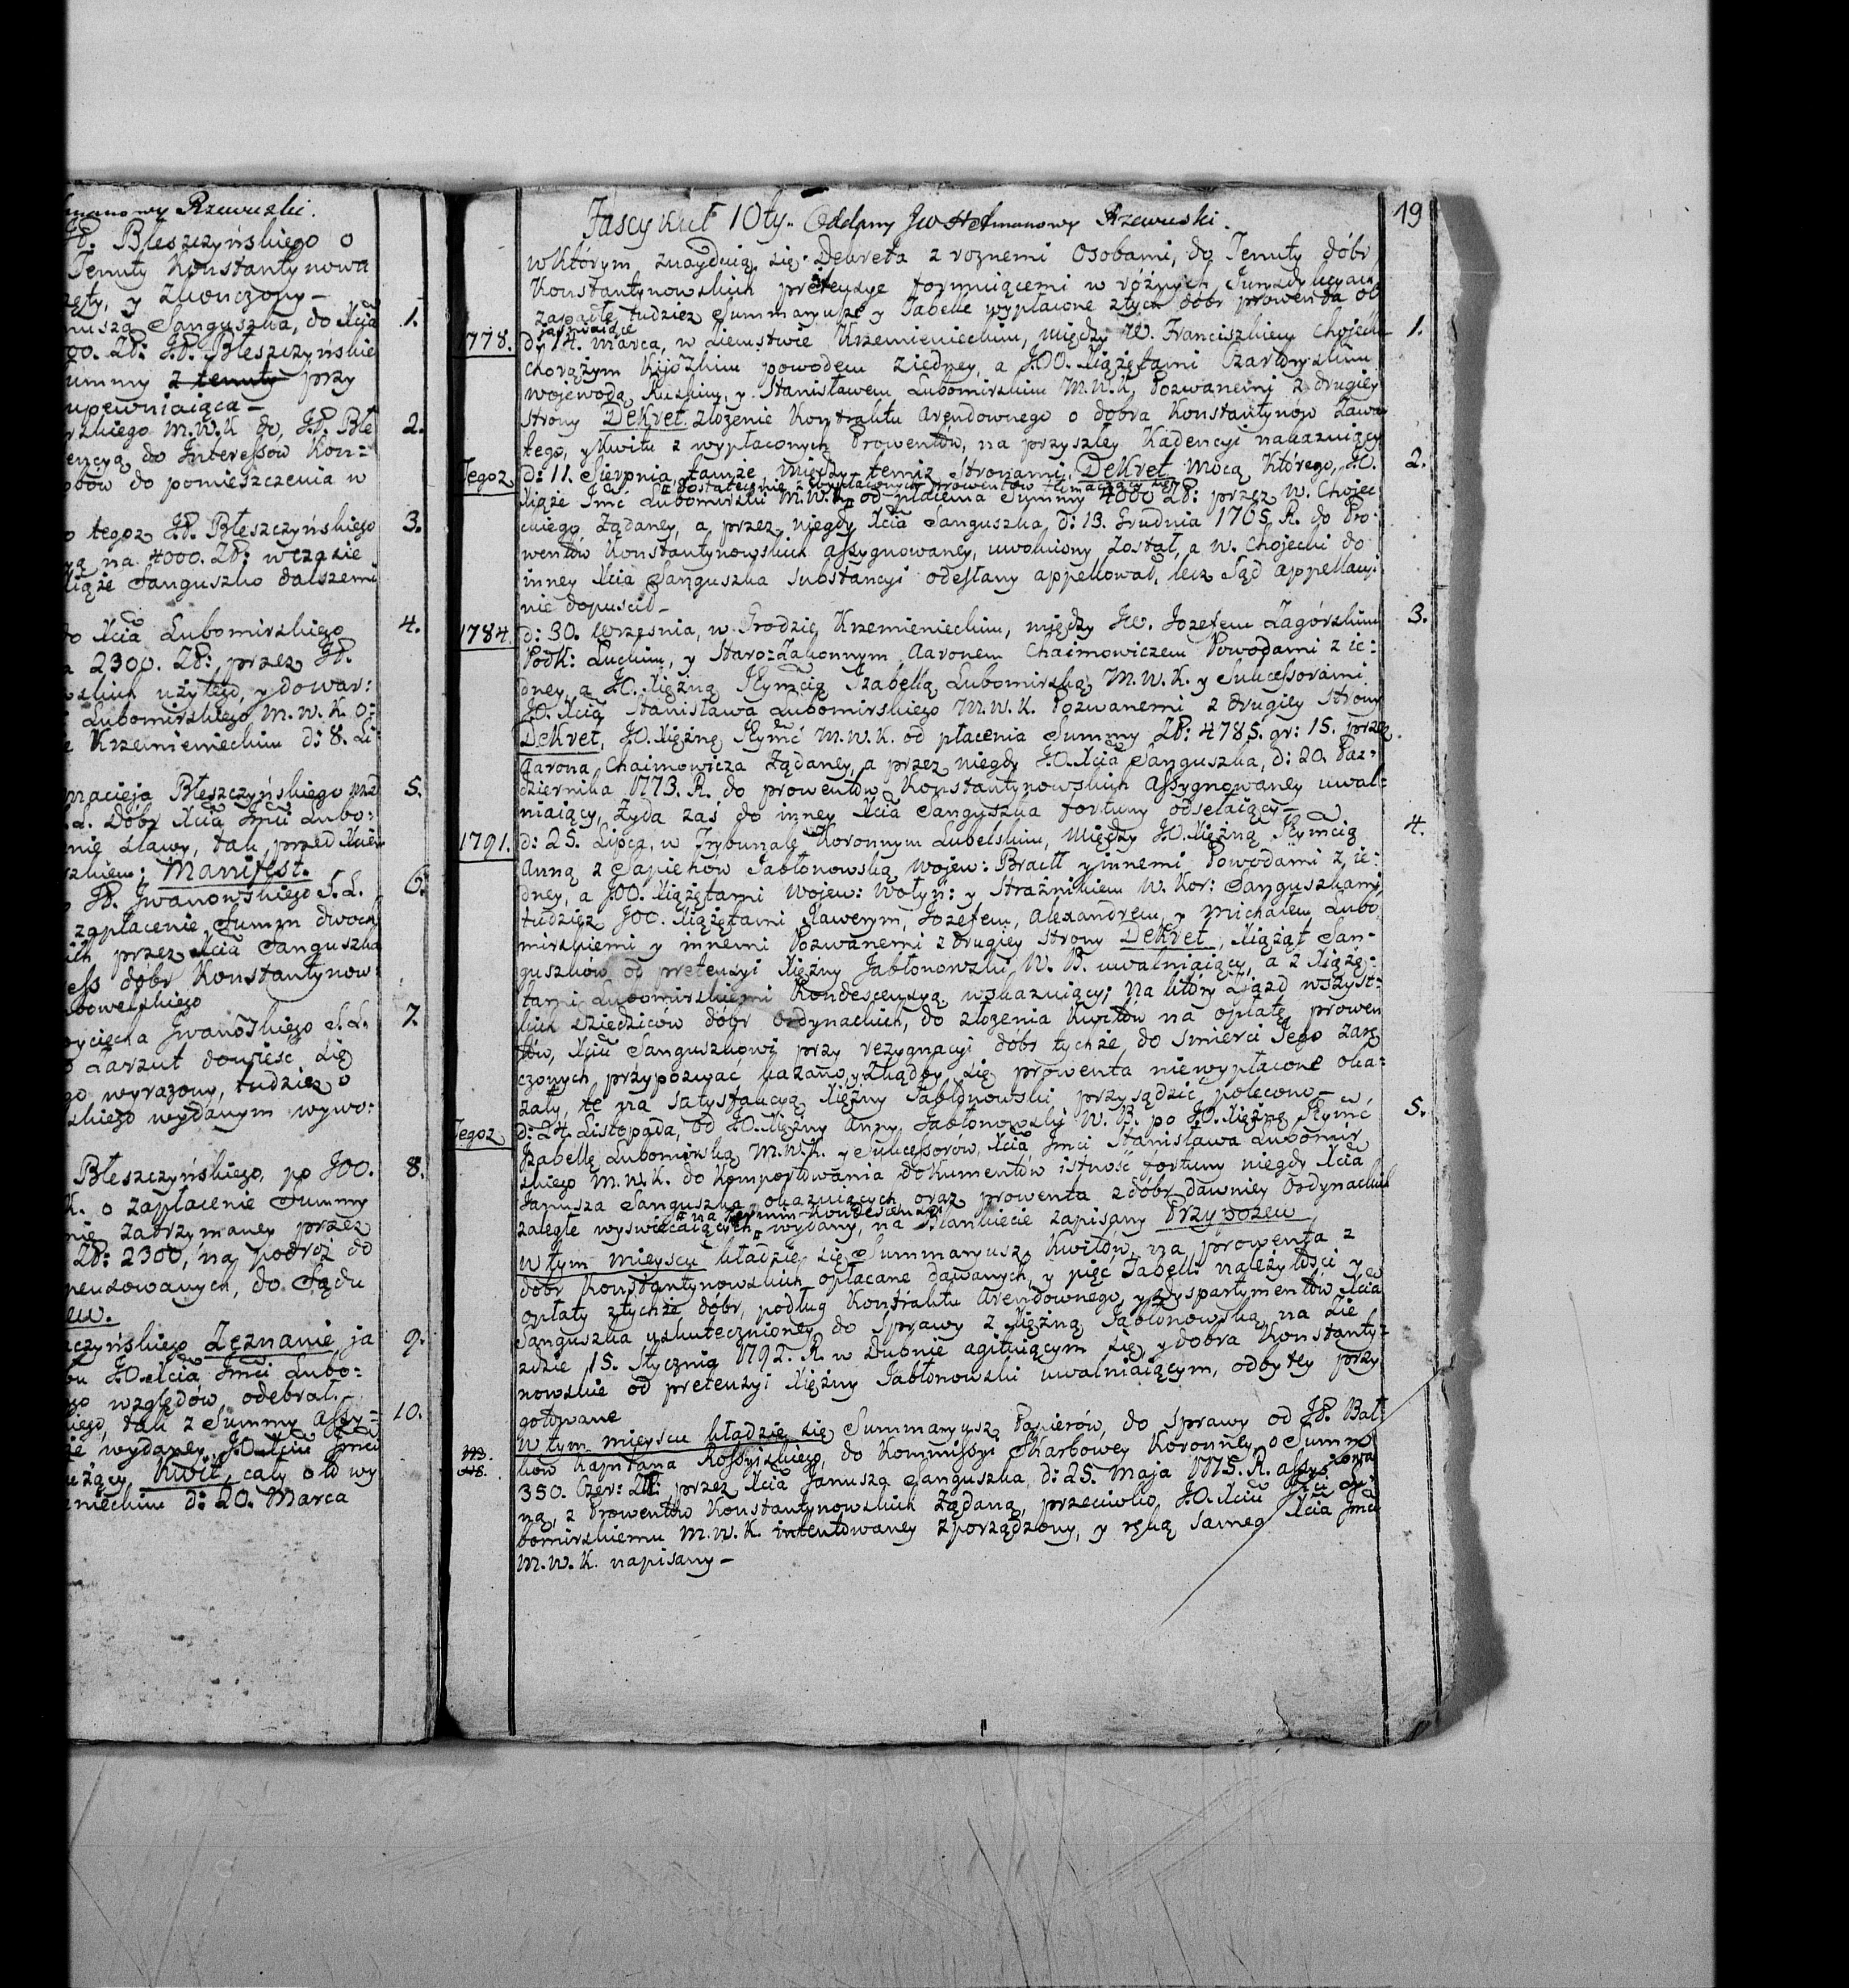 manowy Rzewuski.
JP. Błeszczyńskiego o
Tenuty Konstantynowa
zęty, y Zkończony –
nusza Sanguszka, do Xcia 1.
00. Zł: J.P. Błeszczyńskie
Summy z tenuty przy
upewniaiąca –
rskiego M.W.K do, J.P. Błe 2.
encyą do Interessów Kon=
obów do pomieszczenia w
o tegoz J.P. Błeszczyńskiego 3.
yą na 4000. Zł: wczasie
Xiąże Sanguszko dalszemi
do Xcia Lubomirskiego 4.
a 2300. Zł: przez JP.
wskich użytego, y dowar:
i Lubomirskiego M.W.K. o:
e Krzemienieckim d: 8. Li
Macieja Błeszczyńskiego prze 5.
Dóbr Xcia Jmci Lubo:
nie Sławy, tak przed Xciem
rskiem; Manifest.
o JP. Jwanowskiego S.L. 6.
zapłacenie Summ dwoch
ich przez Xcia Sanguszka
ess dóbr Konstantynow:
bowelskiego
oyciecha Jwanoskiego S.L. 7.
o Zarzut dowieść się
go wyrazony, tudziez o
skiego wydanym wywo:
Błeszczyńskiego, po JOO. 8.
K. o zapłacenie Summy
nie zatrzymaney przez
Zł: 2300, na podróż do
pensowanych, do Sądu
ew.
zczyńskiego Zeznanie ja 9.
bu J.O. Xcia Jmci Lubo:
go względów, odebrał. –
kiego, tak z Summy Assy= 10.
że wydaney J.O. Xciu Jmci
użący, Kwit, cały old wy
emieckim d: 20. Marca
19
Fascykuł 10ty. Oddany Jw Hetmanowy Rzewuski.
wktórym znayduią się Dekreta z roznemi Osobami, do Tenuty dóbr
Konstantynowskich pretensye formuiącemi w różnych Jurysdykcyach
zapadłe, tudziez Summaryusze y Tabelle wypłacone ztych dóbr prowenta ob
jasniaiące
1778. d: 14. Marca, w Ziemstwie Krzemienieckim, między W. Franciszkiem Chojeck 1.
Chorążym Kijoskim powodem ziedney, a J.OO. Xiążętami Czartoryskim
Wojewodą Ruskim, y Stanisławem Lubomirskim M.W.K. Pozwanemi z drugiey
strony Dekret złożenie Kontraktu Arendownego o dobra Konstantynów Zawar
tego, y Kwitu z wypłaconych Prowentów, na przyszłey Kadencyi nakazuiący
Tegoz d: 11. Sierpnia, tamże, między temiz Stronami, Dekret mocą którego, J.O. 2.
dostatecznie z wypłaconych prowentów tłmaczący się
Xiąże Jmć Lubomirski M.W.K. od płacenia Summy 4000 Zł: przez W. Chojec
kiego żądaney, a przez niegdy Xcia Sanguszka d: 13. Grudnia 1765. R. do Pro:
wentów Konstantynowskich assygnowaney, uwolniony został, a W. Chojecki do
inney Xcia Sanguszka Substancyi odesłany appellował, lecz Sąd appellacyi
nie dopuscił –
1784. d: 30. Wrzesnia, w Grodzie Krzemienieckim, między Jw. Jozefem Zagórskim 3.
Podk: Łuckim, y Staro=Zakonnym Aaronem Chaimowiczem Powodami z ie:
dney, a J.O. Xiężną Jeymcią Jzabellą Lubomirską M.W.K. y Sukcessorami
J.O. Xcia Stanisława Lubomirskiego M.W.K. Pozwanemi z drugiey strony
Dekret, J.O. Xiężnę Jeymć M.W.K. od płacenia Summy Zł: 4785. gr: 15. przez
Aarona Chaimowicza żądaney, a przez niegdy J.O. Xcia Sanguszka, d: 20. Paz=
dziernika 1773. R. do prowentów Konstantynowskich Assygnowaney uwal:
niaiący, Żyda zaś do inney Xcia Sanguszka fortuny odsełaiący –
1791. d: 25. Lipca, w Trybunale Koronnym Lubelskim, między J.O. Xiężną Jeymcią 4.
Anną z Sapiehów Jabłonowską Wojew: Bracił y innemi Powodami z ie:
dney, a J.OO. Xiążętami Wojew: Wołyń: y Strażnikiem W. Kor: Sanguszkami,
tudziez JOO. Xiążętami Xawerym, Jozefem, Alexandrem, y Michałem Lubo
mirskiemi y innemi Pozwanemi z drugiey strony Dekret, Xiążąt San=
guszków od pretensyi Xiężny Jabłonowski W. B. uwalniaiący, a z Xiążę:
tami Lubomirskiemi Kondescensyą wskazuiący; na który Zjazd wszyst:
kich Dziedziców dóbr Ordynackich, do złożenia Kwitów na opłatę prowen
tów, Xciu Sanguszkowi przy rezygnacyi dóbr tychże, do śmierci Jego zarę
czonych przypozwać kazano, y żkądby się prowenta niewypłacone oka:
zały, te na satysfakcyą Xiężny Jabłonowski przysądzić polecono –
Tegoz d: 24. Listopada, od J.O. Xiężny Anny Jabłonowski W. B. po J.O. Xiężnę Jeymć 5.
Jzabellę Lubomirską M.W.K. y Sukcessorów Xcia Jmci Stanisława Lubomir
skiego M.W.K. do Komportowania dokumentów istność fortuny niegdy Xcia
Janusza Sanguszka okazuiących, oraz prowenta z dóbr dawniey Ordynackich
a na termin kondescensyi
zaległe wyświecaiących, wydany, na Blankiecie zapisany Przypozew
w tym mieyscu kładzie się Summaryusz Kwitów, na prowenta z
dóbr Konstantynowskich opłacane dawanych, y pięć Tabell: należytości y
opłaty ztychże dóbr, podług Kontraktu Arendownego, y Dyspartymentów Xcia
Sanguszka uskutecznioney, do Sprawy z Xiężną Jabłonowską na Zie
zdzie 15. Stycznia 1792. R. w Dubnie agituiącym się, y dobra Konstanty=
nowskie od pretensyi Xiężny Jabłonowski uwalniaiącym, odbytey przy
gotowane
W tym mieyscu kładzie się Summaryusz Papierów, do Sprawy od JP. Bał:
ków Kapitana Rossyiskiego, do Kommissyi Skarbowey Koronney, o Summę
350. Czer: Zł: przez Xcia Janusza Sanguszka, d: 25. Maja 1775. R. assygnowa
ną, z Prowentów Konstantynowskich żądaną, przeciwko J.O. Xciu Jmci Lu
bomirskiemu M.W.K. intentowaney zporządzony, y ręką samego Xcia Jmci
M.W.K. napisany –